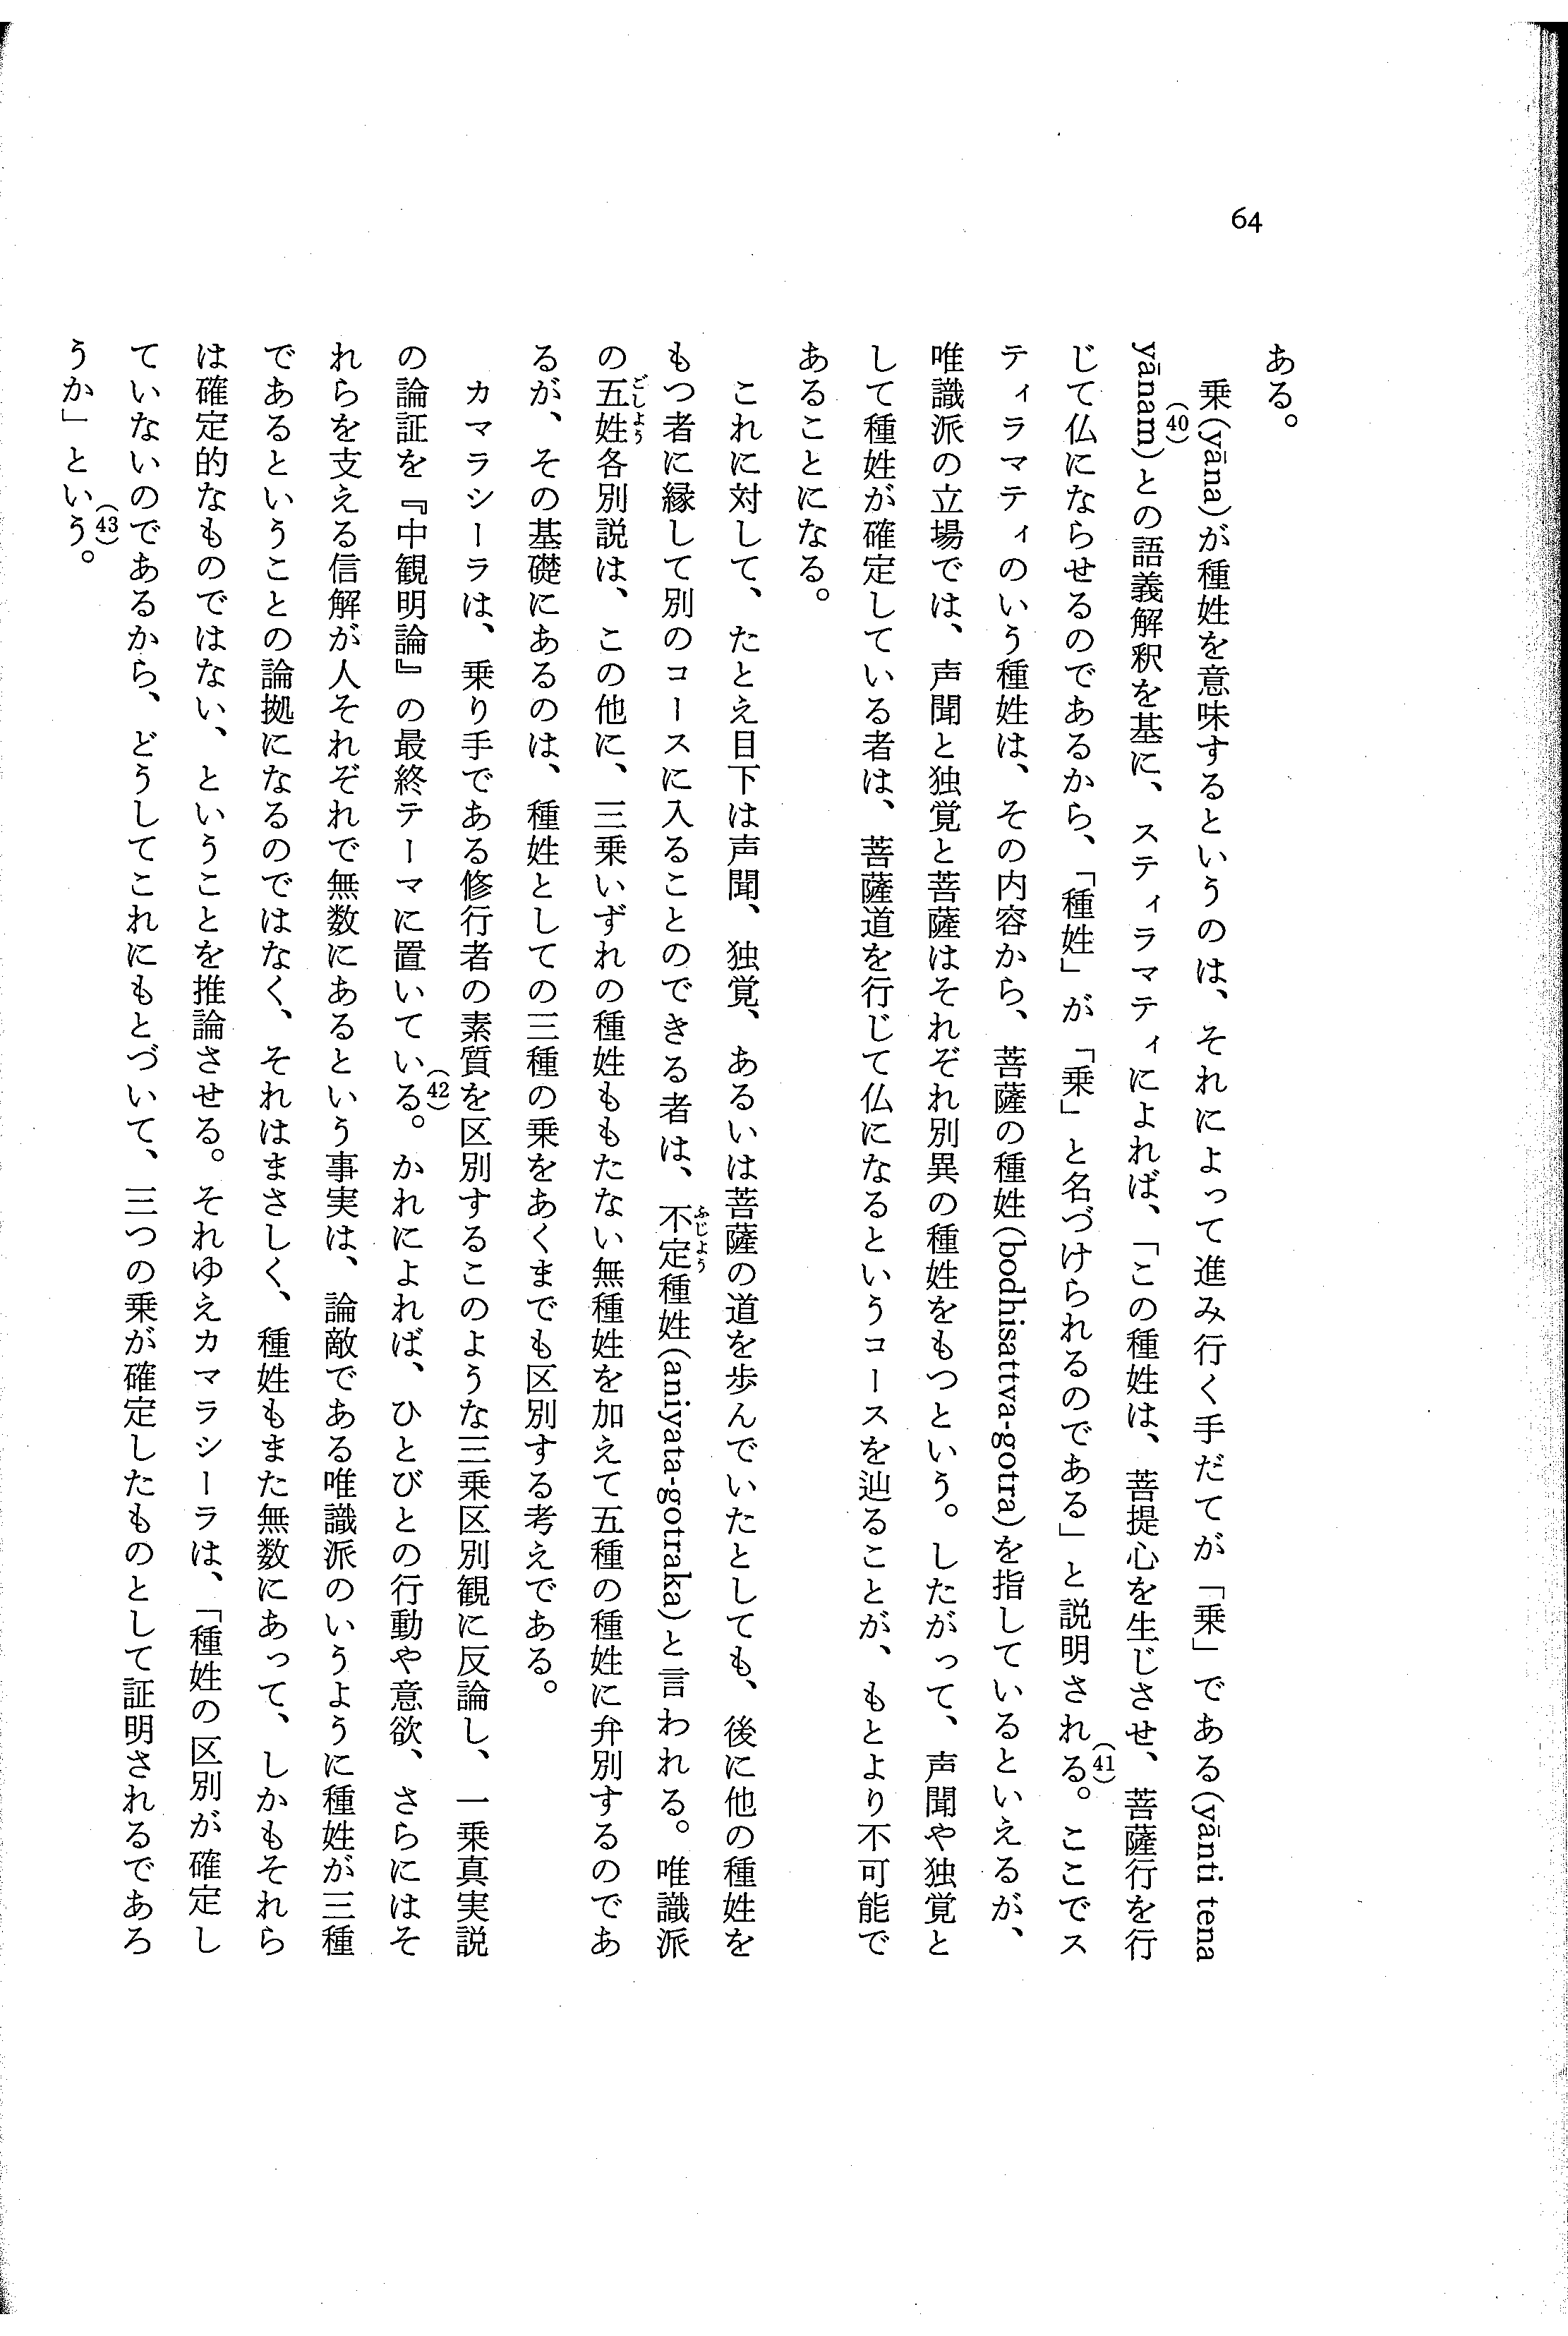 64
ある。
乗(yāna)が種姓を意味するというのは、それによって進み行く手だてが「乗」である(yānti tena
yānam)(40)との語義解釈を基に、スティラマティによれば、「この種姓は、菩提心を生じさせ、菩薩行を行
じて仏にならせるのであるから、「種姓」が「乗」と名づけられるのである」と説明される(41)。ここでス
ティラマティのいう種姓は、その内容から、菩薩の種姓(bodhisattva-gotra)を指しているといえるが、
唯識派の立場では、声聞と独覚と菩薩はそれぞれ別異の種姓をもつという。したがって、声聞や独覚と
して種姓が確定している者は、菩薩道を行じて仏になるというコースを辿ることが、もとより不可能で
あることになる。
これに対して、たとえ目下は声聞、独覚、あるいは菩薩の道を歩んでいたとしても、後に他の種姓を
もつ者に縁して別のコースに入ることのできる者は、不定種姓(aniyata-gotraka)と言われる。唯識派
ふじよう
の五姓各別説は、この他に、三乗いずれの種姓ももたない無種姓を加えて五種の種姓に弁別するのであ
ごしよう
るが、その基礎にあるのは、種姓としての三種の乗をあくまでも区別する考えである。
カマラシーラは、乗り手である修行者の素質を区別するこのような三乗区別観に反論し、一乗真実説
の論証を『中観明論』の最終テーマに置いている(42)。かれによれば、ひとびとの行動や意欲、さらにはそ
れらを支える信解が人それぞれで無数にあるという事実は、論敵である唯識派のいうように種姓が三種
であるということの論拠になるのではなく、それはまさしく、種姓もまた無数にあって、しかもそれら
は確定的なものではない、ということを推論させる。それゆえカマラシーラは、「種姓の区別が確定し
ていないのであるから、どうしてこれにもとづいて、三つの乗が確定したものとして証明されるであろ
うか」という(43)。